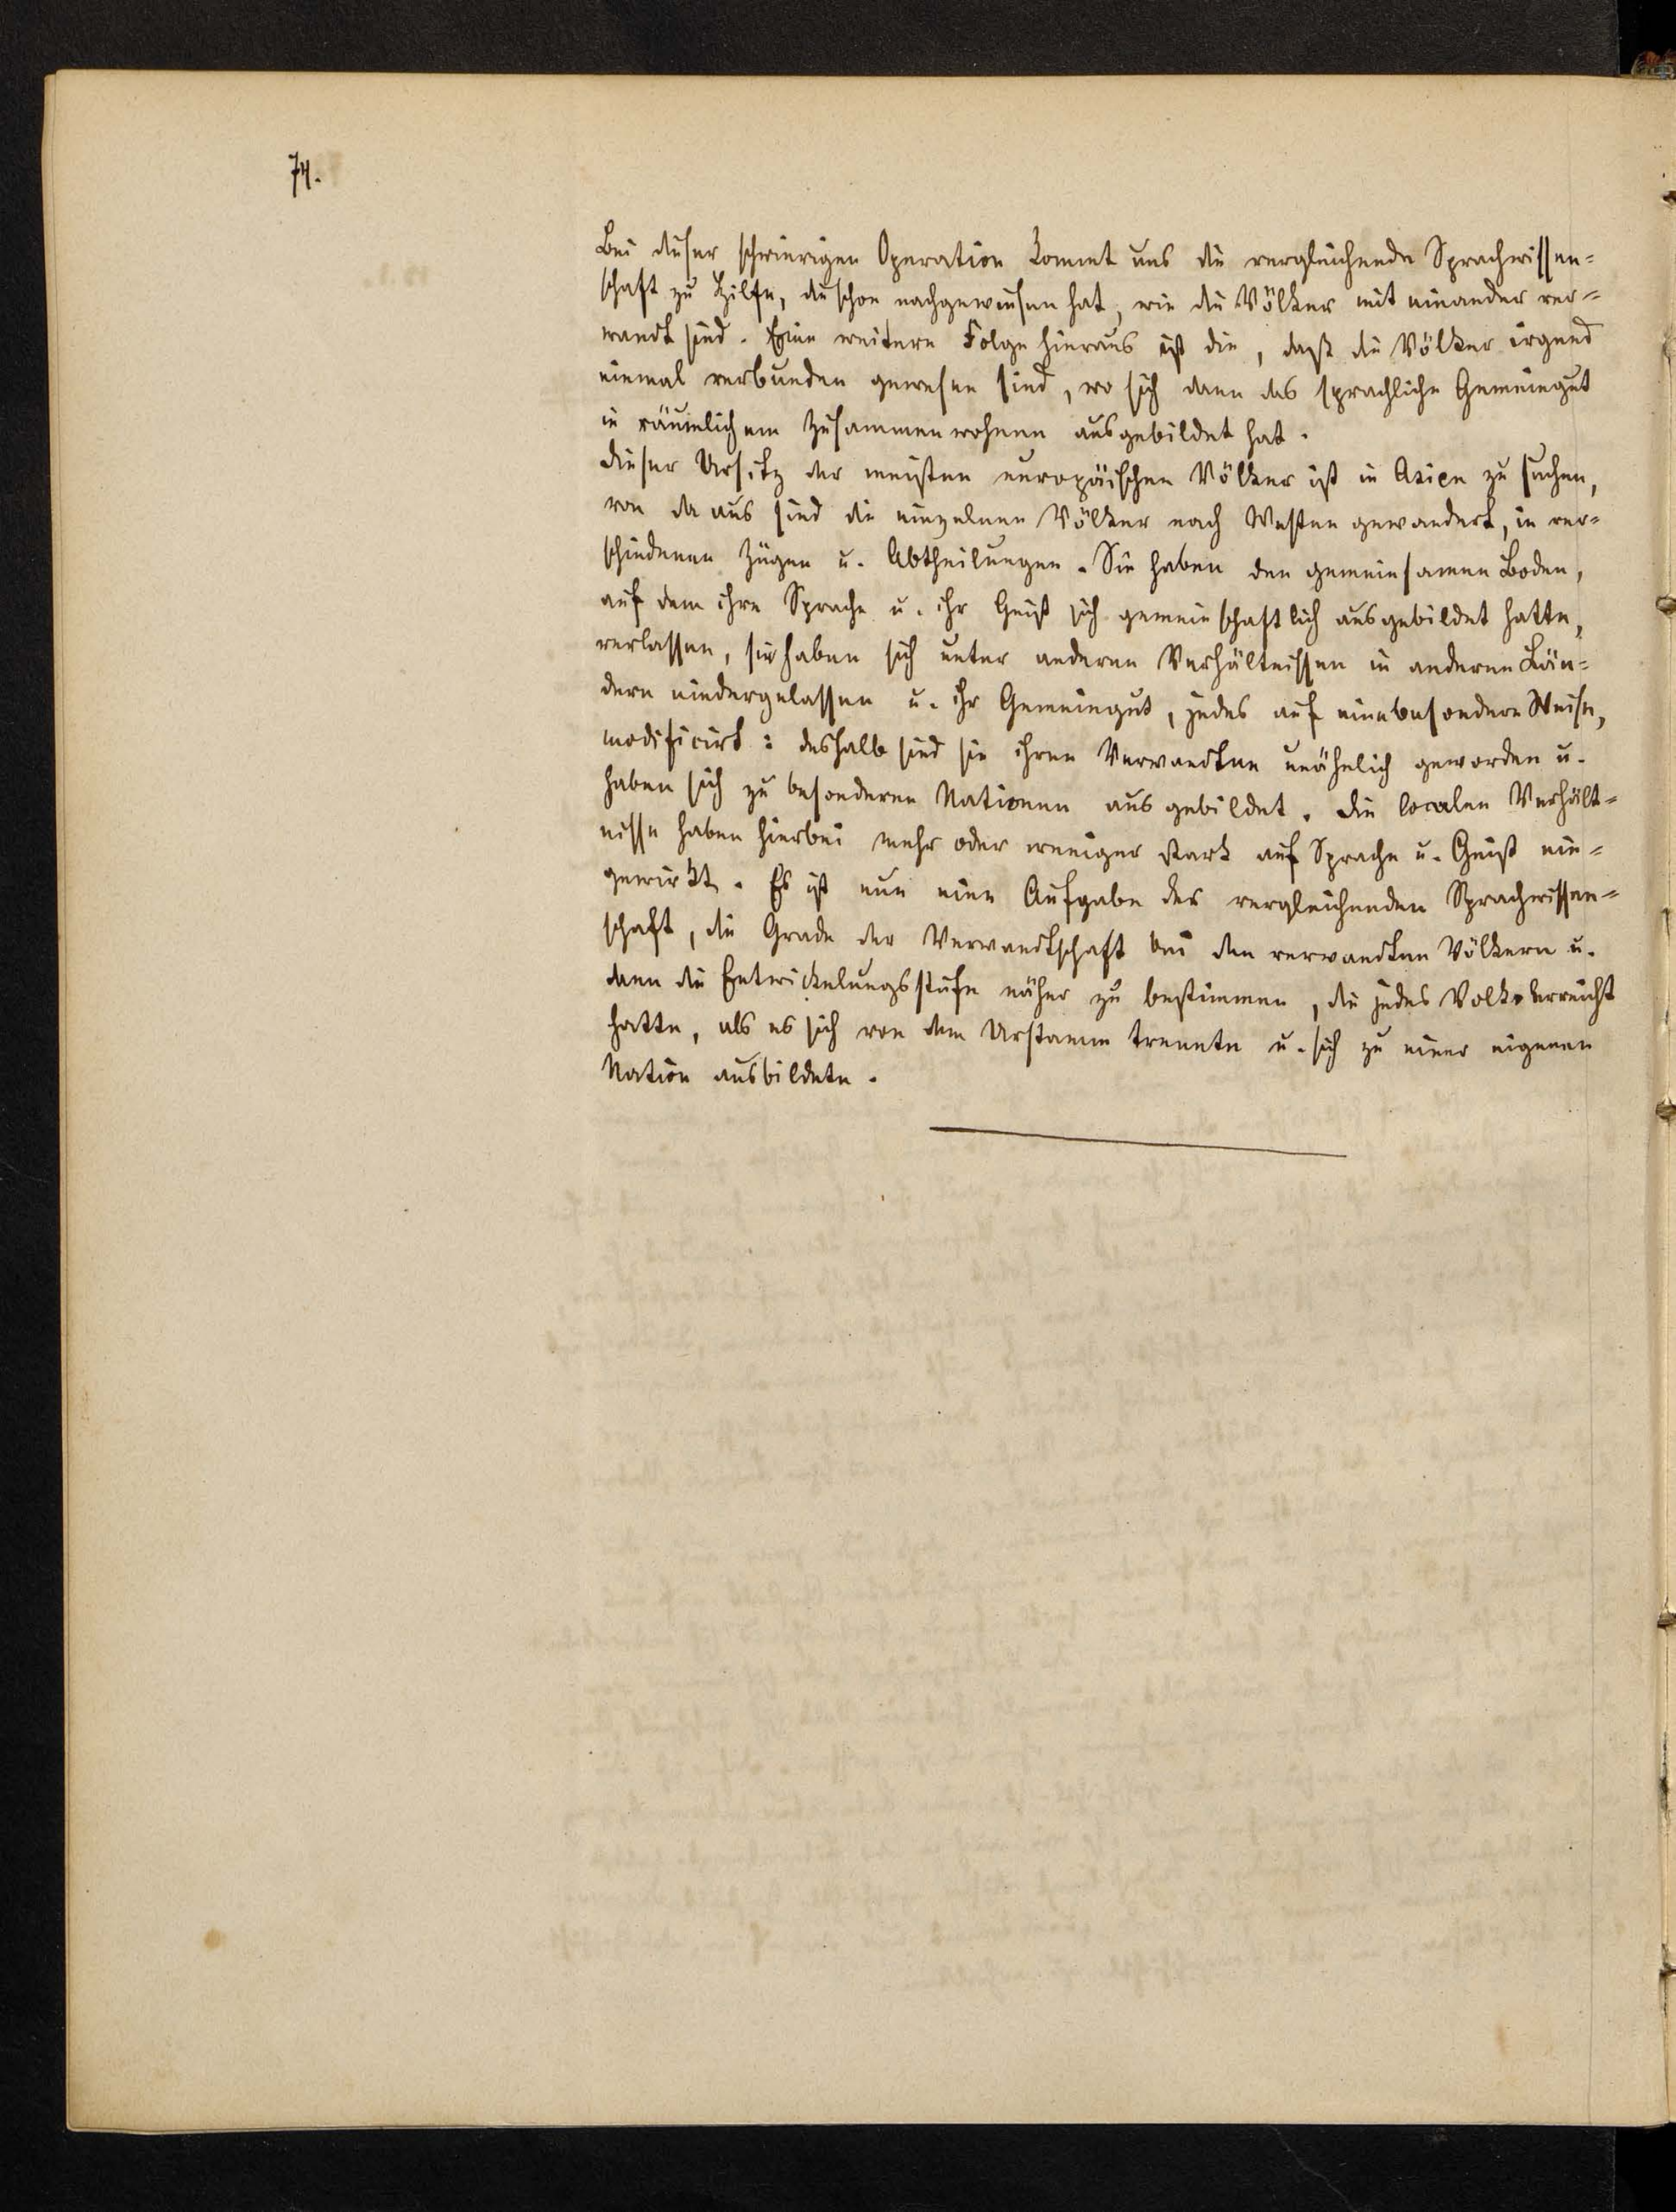 74.
Bei dieser schwierigen Operation kommt uns die vergleichende Sprachwissen=
schaft zu Hilfe, die schon nachgewiesen hat, wie die Völker mit einander ver=
wandt sind. Eine weitere Folge hieraus ist die, daß die Völker irgend
einmal verbunden gewesen sind, wo sich dann das sprachliche Gemeingut
in räumlichem Zusammenwohnen ausgebildet hat.
Dieser Ursitz der meisten europäischen Völker ist in Asien zu suchen,
von da aus sind die einzelnen Völker nach Westen gewandert, in ver=
schiedenen Zügen u. Abtheilungen. Sie haben den gemeinsamen Boden,
auf dem ihre Sprache u. ihr Geist sich gemeinschaftlich ausgebildet hatte,
verlassen, sie haben sich unter anderen Verhältnissen in anderen Län=
dern niedergelassen u. ihr Gemeingut, jedes auf eine besondere Weise,
modificirt: deshalb sind sie ihren Verwandten unähnlich geworden u.
haben sich zu besonderen Nationen ausgebildet. Die localen Verhält=
nisse haben hierbei mehr oder weniger stark auf Sprache u. Geist ein=
gewirkt. Es ist nun eine Aufgabe der vergleichenden Sprachwissen=
schaft, die Grade der Verwandtschaft bei den verwandten Völkern u.
dann die Entwickelungsstufe näher zu bestimmen, die jedes Volk erreicht
hatte, als es sich von dem Urstamm trennte u. sich zu einer eigenen
Nation ausbildete.